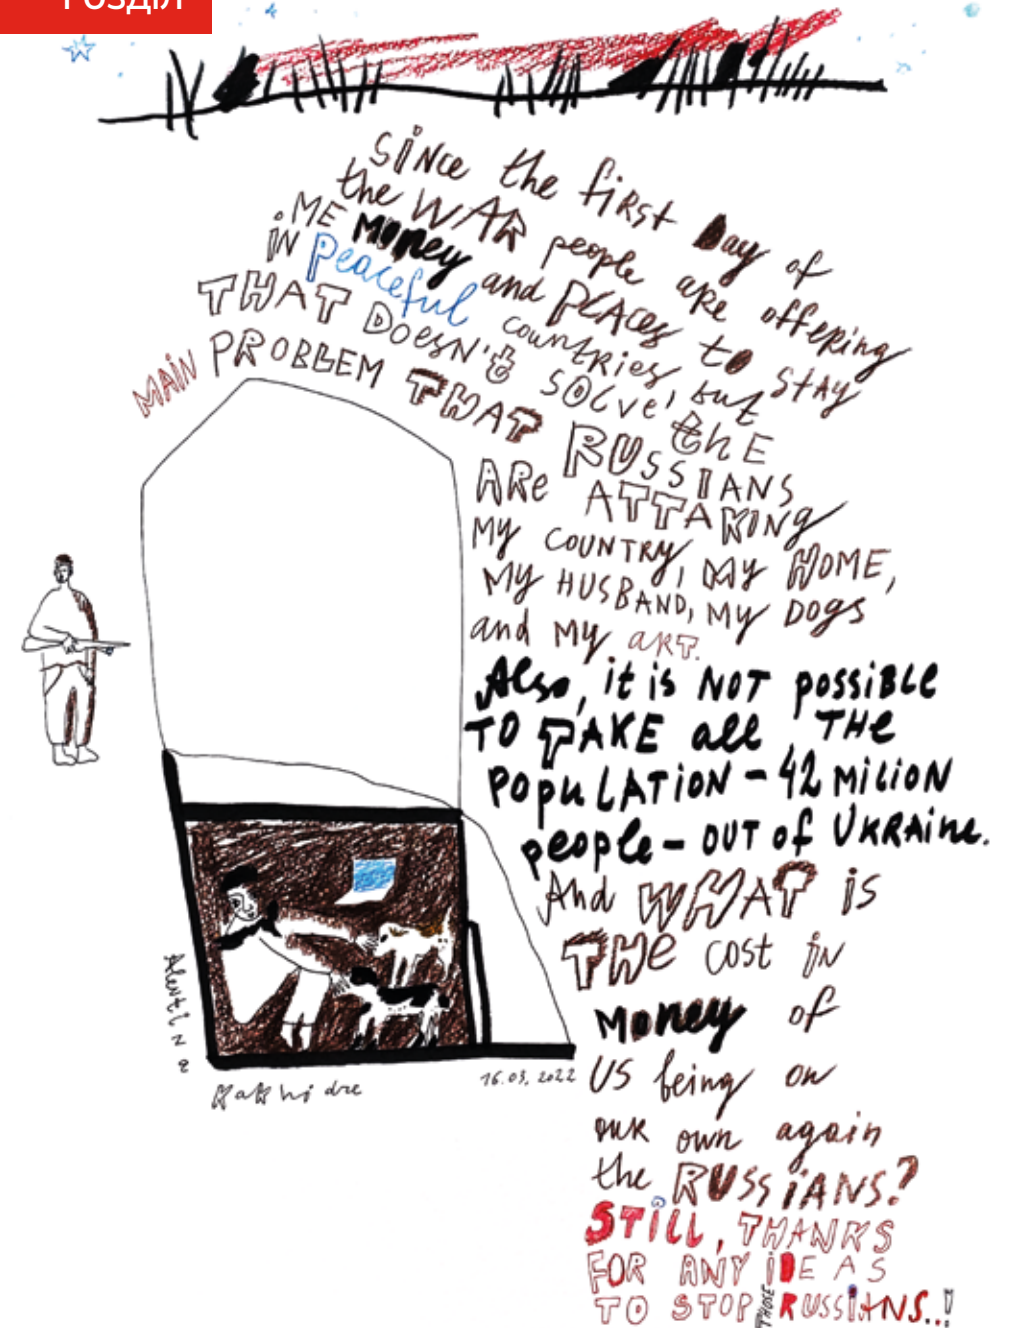 РОЗДІЛ
SiNce the first Day of
the WAR people are offering
ME MONey and PLACes to STAY
iN peaceful countries, but
THAT DOesN't SOLve the
MAiN PROBLEM THAT RUSSIANS
ARe ATTAKINg
My COUNTRY, My HOME,
My HUSBAND, My DOgS
and My ART.
Also, it is NOT possiBLe
TO TAKE all THe
POPuLATiON – 42 MiLiON
people – OUT of UKRAiNe.
And WHAT iS
THe COST iN
MoNey of
US being on
our own again
the RUSSiANS?
STiLL, THANKS
FOR ANY iDEAS
TO STOP THOSE RUSSiANS..!
Alevtina
Kakhidze
16.03.2022